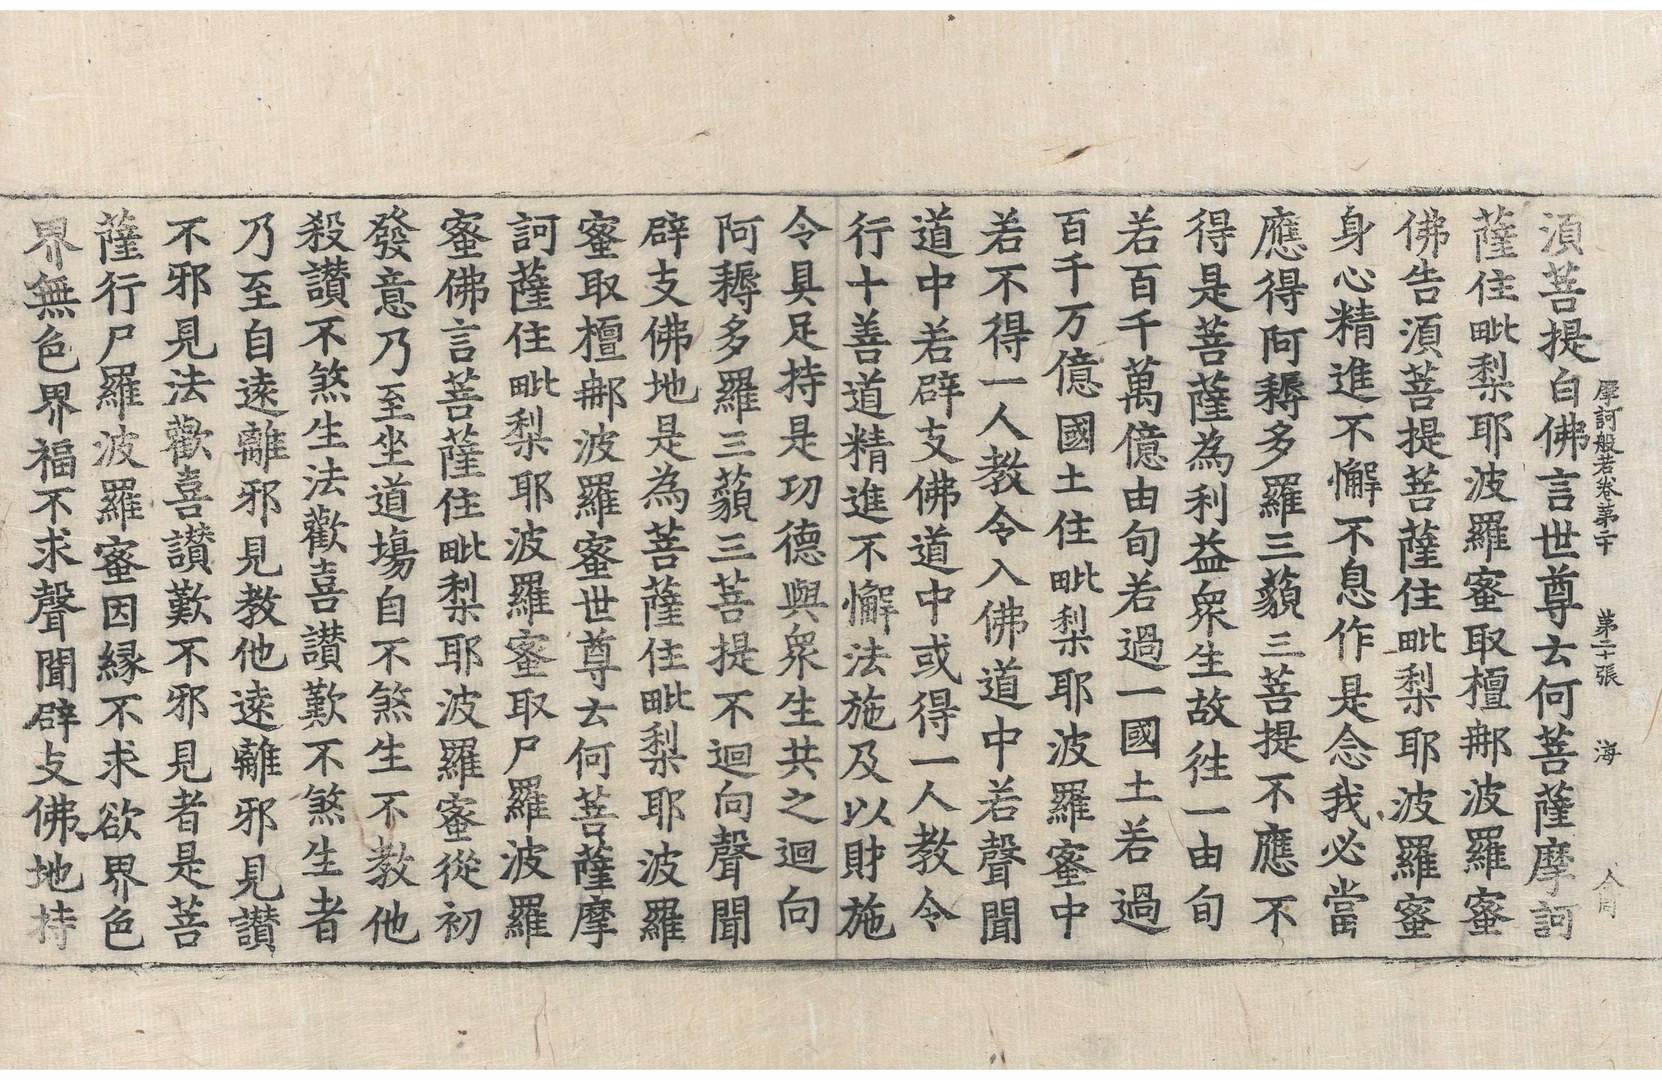 摩訶般若卷第二十　第二十張　海
須菩提白佛言世尊云何菩薩摩訶
薩住毗梨耶波羅蜜取檀那波羅蜜
佛告須菩提菩薩住毗梨耶波羅蜜
身心精進不懈不息作是念我必當
應得阿耨多羅三藐三菩提不應不
得是菩薩為利益眾生故往一由旬
若百千萬億由旬若過一國土若過
百千万億國土住毗梨耶波羅蜜中
若不得一人教令入佛道中若聲聞
道中若辟支佛道中或得一人教令
行十善道精進不懈法施及以財施
令具足持是功德與眾生共之迴向
阿耨多羅三藐三菩提不迴向聲聞
辟支佛地是為菩薩住毗梨耶波羅
蜜取檀那波羅蜜世尊云何菩薩摩
訶薩住毗梨耶波羅蜜取尸羅波羅
蜜佛言菩薩住毗梨耶波羅蜜從初
發意乃至坐道場自不煞生不教他
殺讚不煞生法歡喜讚歎不煞生者
乃至自遠離邪見教他遠離邪見讚
不邪見法歡喜讚歎不邪見者是菩
薩行尸羅波羅蜜因緣不求欲界色
界無色界福不求聲聞辟支佛地持